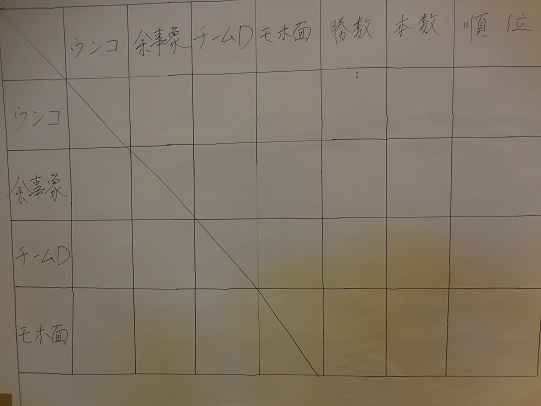 ウンコ 余事象 チームD モホ面 勝数 本数 順位
ウンコ
余事象
チームD
モホ面